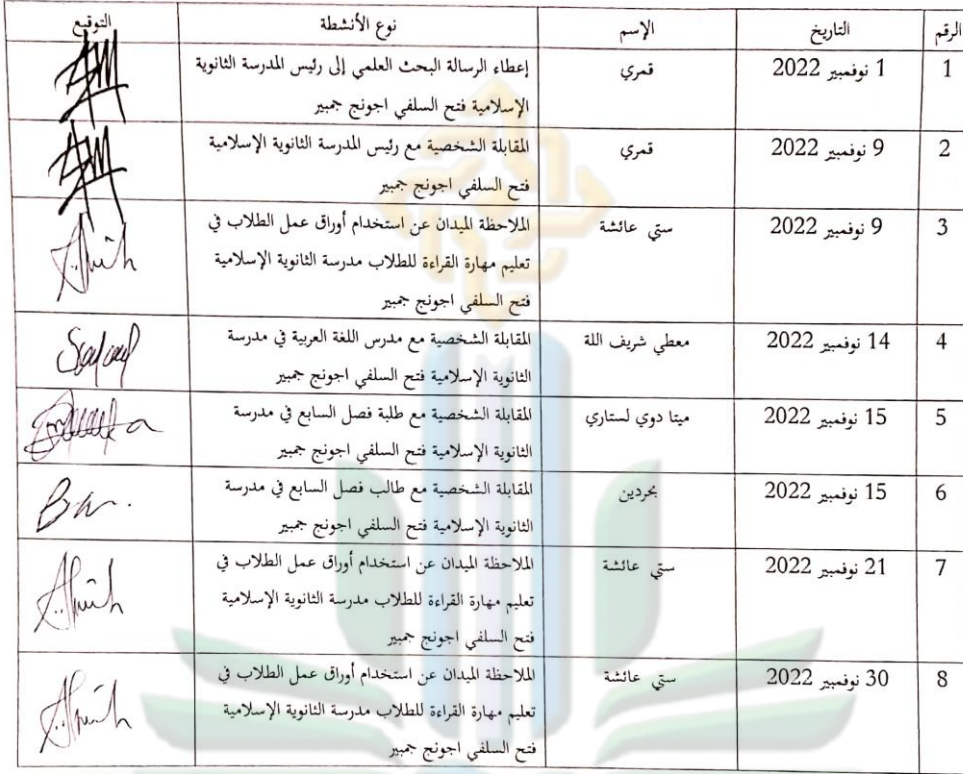 الرقم التاريخ الإسم نوع الأنشطة التوقيع
1 1 نوفمبير 2022 قمري إعطاء الرسالة البحث العلمي إلى رئيس المدرسة الثانوية
الإسلامية فتح السلفي اجونج جمبير
2 9 نوفمبير 2022 قمري المقابلة الشخصية مع رئيس المدرسة الثانوية الإسلامية
فتح السلفي اجونج جمبير
3 9 نوفمبير 2022 ستي عائشة الملاحظة الميدان عن استخدام أوراق عمل الطلاب في
تعليم مهارة القراءة للطلاب مدرسة الثانوية الإسلامية
فتح السلفي اجونج جمبير
4 14 نوفمبير 2022 معطي شريف اللة المقابلة الشخصية مع مدرس اللغة العربية في مدرسة
الثانوية الإسلامية فتح السلفي اجونج جمبير
5 15 نوفمبير 2022 ميتا دوي لستاري المقابلة الشخصية مع طلبة فصل السابع في مدرسة
الثانوية الإسلامية فتح السلفي اجونج جمبير
6 15 نوفمبير 2022 بحردين المقابلة الشخصية مع طالب فصل السابع في مدرسة
الثانوية الإسلامية فتح السلفي اجونج جمبير
7 21 نوفمبير 2022 ستي عائشة الملاحظة الميدان عن استخدام أوراق عمل الطلاب في
تعليم مهارة القراءة للطلاب مدرسة الثانوية الإسلامية
فتح السلفي اجونج جمبير
8 30 نوفمبير 2022 ستي عائشة الملاحظة الميدان عن استخدام أوراق عمل الطلاب في
تعليم مهارة القراءة للطلاب مدرسة الثانوية الإسلامية
فتح السلفي اجونج جمبير